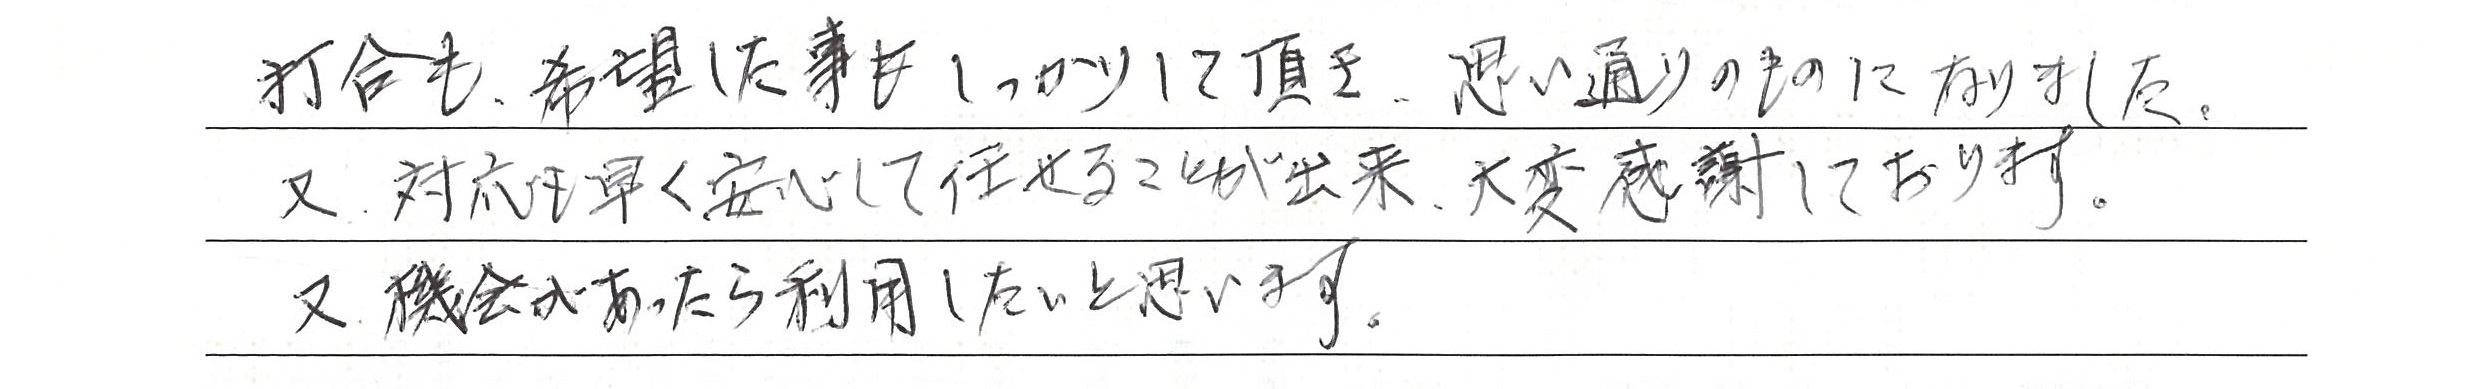 打合も、希望した事もしっかりして頂き、思い通りのものになりました。
又、対応も早く安心して任せることが出来、大変感謝しております。
又、機会があったら利用したいと思います。